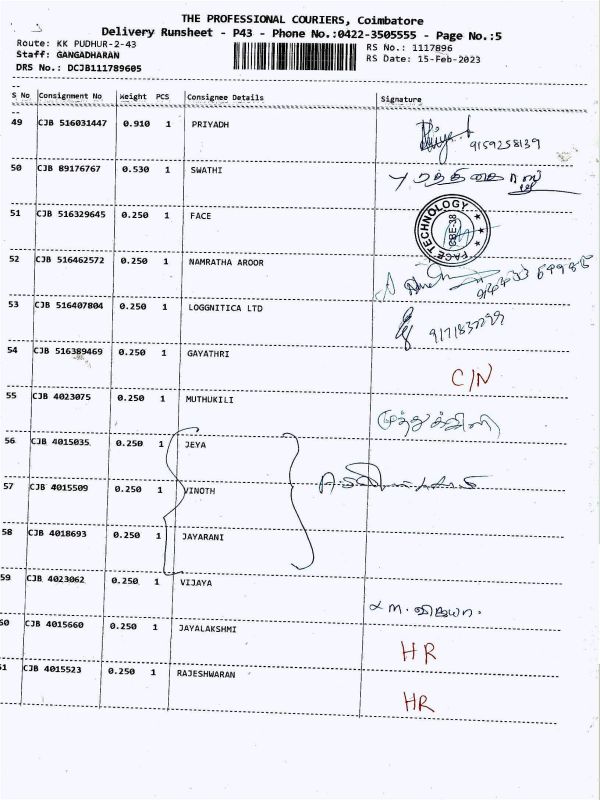 THE PROFESSIONAL COURIERS, Coimbatore
Delivery Runsheet - P43 - Phone No.:0422-3505555 - Page No.:5
Route: KK PUDHUR-2-43
RS No.: 1117896
Staff: GANGADHARAN
RS Date: 15-Feb-2023
DRS No.: DCJB111789605
S No Consignment No Weight PCS Consignee Details Signature
49 CJB 516031447 0.910 1 PRIYADH
9159258139
50 CJB 89176767 0.530 1 SWATHI
51 CJB 516329645 0.250 1 FACE
FACE TECHNOLOGY
CBE-38
52 CJB 516462572 0.250 1 NAMRATHA AROOR
53 CJB 516407804 0.250 1 LOGGNITICA LTD
54 CJB 516389469 0.250 1 GAYATHRI
C/N
55 CJB 4023075 0.250 1 MUTHUKILI
முத்துக்கிளி
56 CJB 4015035 0.250 1 JEYA
57 CJB 4015509 0.250 1 VINOTH
58 CJB 4018693 0.250 1 JAYARANI
59 CJB 4023062 0.250 1 VIJAYA
M. விஜயா.
60 CJB 4015660 0.250 1 JAYALAKSHMI
HR
61 CJB 4015523 0.250 1 RAJESHWARAN
HR